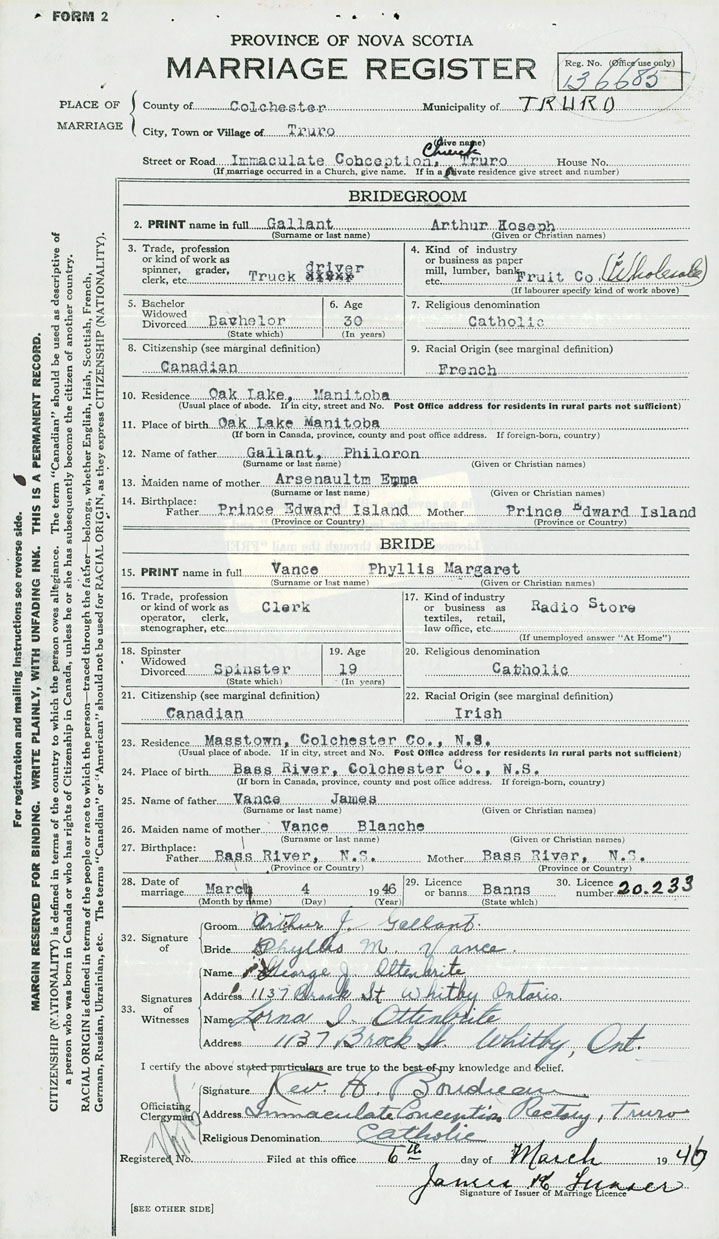 FORM 2
PROVINCE OF NOVA SCOTIA
MARRIAGE REGISTER
Reg. No. (Office use only)
136685
PLACE OF MARRIAGE
County of Colchester Municipality of TRURO
City, Town or Village of Truro
(Give name)
Church
Street or Road Immaculate Cohception, Truro House No.
(If marriage occurred in a Church, give name. If in a private residence give street and number)
BRIDEGROOM
2. PRINT name in full Gallant Arthur Hoseph
(Surname or last name) (Given or Christian names)
3. Trade, profession or kind of work as spinner, grader, clerk, etc. Truck driver
4. Kind of industry or business as paper mill, lumber, bank, etc. Fruit Co. (Wholesale)
(If labourer specify kind of work above)
5. Bachelor Widowed Divorced Bavhelor (State which)
6. Age 30 (In years)
7. Religious denomination Catholic
8. Citizenship (see marginal definition) Canadian
9. Racial Origin (see marginal definition) French
10. Residence Oak Lake, Manitoba
(Usual place of abode. If in city, street and No. Post Office address for residents in rural parts not sufficient)
11. Place of birth Oak Lake Manitoba
(If born in Canada, province, county and post office address. If foreign-born, country)
12. Name of father Gallant, Philoron
(Surname or last name) (Given or Christian names)
13. Maiden name of mother Arsenaultm Emma
(Surname or last name) (Given or Christian names)
14. Birthplace: Father Prince Edward Island Mother Prince Edward Island
(Province or Country) (Province or Country)
BRIDE
15. PRINT name in full Vance Phyllis Margaret
(Surname or last name) (Given or Christian names)
16. Trade, profession or kind of work as operator, clerk, stenographer, etc. Clerk
17. Kind of industry or business as textiles, retail, law office, etc. Radio Store
(If unemployed answer "At Home")
18. Spinster Widowed Divorced Spinster (State which)
19. Age 19 (In years)
20. Religious denomination Catholic
21. Citizenship (see marginal definition) Canadian
22. Racial Origin (see marginal definition) Irish
23. Residence Masstown, Colchester Co., N.S.
(Usual place of abode. If in city, street and No. Post Office address for residents in rural parts not sufficient)
24. Place of birth Bass River, Colchester Co., N.S.
(If born in Canada, province, county and post office address. If foreign-born, country)
25. Name of father Vance James
(Surname or last name) (Given or Christian names)
26. Maiden name of mother Vance Blanche
(Surname or last name) (Given or Christian names)
27. Birthplace: Father Bass River, N.S. Mother Bass River, N.S.
(Province or Country) (Province or Country)
28. Date of marriage March 4 1946
(Month by name) (Day) (Year)
29. Licence or banns Banns (State which)
30. Licence number 20.233
32. Signature of
Groom Arthur J. Gallant.
Bride Phyllis M. Vance.
33. Signatures of Witnesses
Name George J. Ottenbrite
Address 1137 Brock St Whitby Ontario.
Name Lorna I. Ottenbrite
Address 1137 Brock St. Whitby, Ont.
I certify the above stated particulars are true to the best of my knowledge and belief.
Officiating Clergyman
Signature Rev. H. Boudreau
Address Immaculate Conception Rectory, Truro
Religious Denomination Catholic
Registered No. Filed at this office 6th day of March 1946
James
Signature of Issuer of Marriage Licence
[SEE OTHER SIDE]
For registration and mailing instructions see reverse side.
MARGIN RESERVED FOR BINDING. WRITE PLAINLY, WITH UNFADING INK. THIS IS A PERMANENT RECORD.
CITIZENSHIP (NATIONALITY) is defined in terms of the country to which the person owes allegiance. The term "Canadian" should be used as descriptive of
a person who was born in Canada or who has rights of Citizenship in Canada, unless he or she has subsequently become the citizen of another country.
RACIAL ORIGIN is defined in terms of the people or race to which the person—traced through the father—belongs, whether English, Irish, Scottish, French,
German, Russian, Ukrainian, etc. The terms "Canadian" or "American" should not be used for RACIAL ORIGIN, as they express CITIZENSHIP (NATIONALITY).